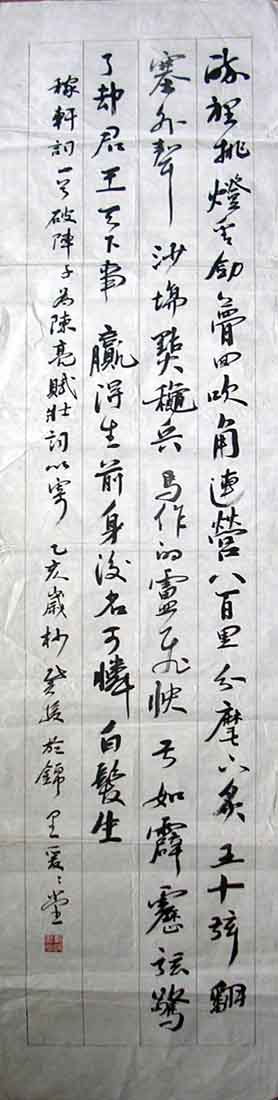 醉裡挑燈看劍夢回吹角連營八百里分麾下炙五十弦翻
塞外聲沙場點穐兵馬作的盧飛快弓如霹靂弦驚
了却君王天下事贏得生前身後名可憐白髮生
稼軒詞一首破陣子為陳亮賦壯詞以寄 乙亥歲杪 於錦里